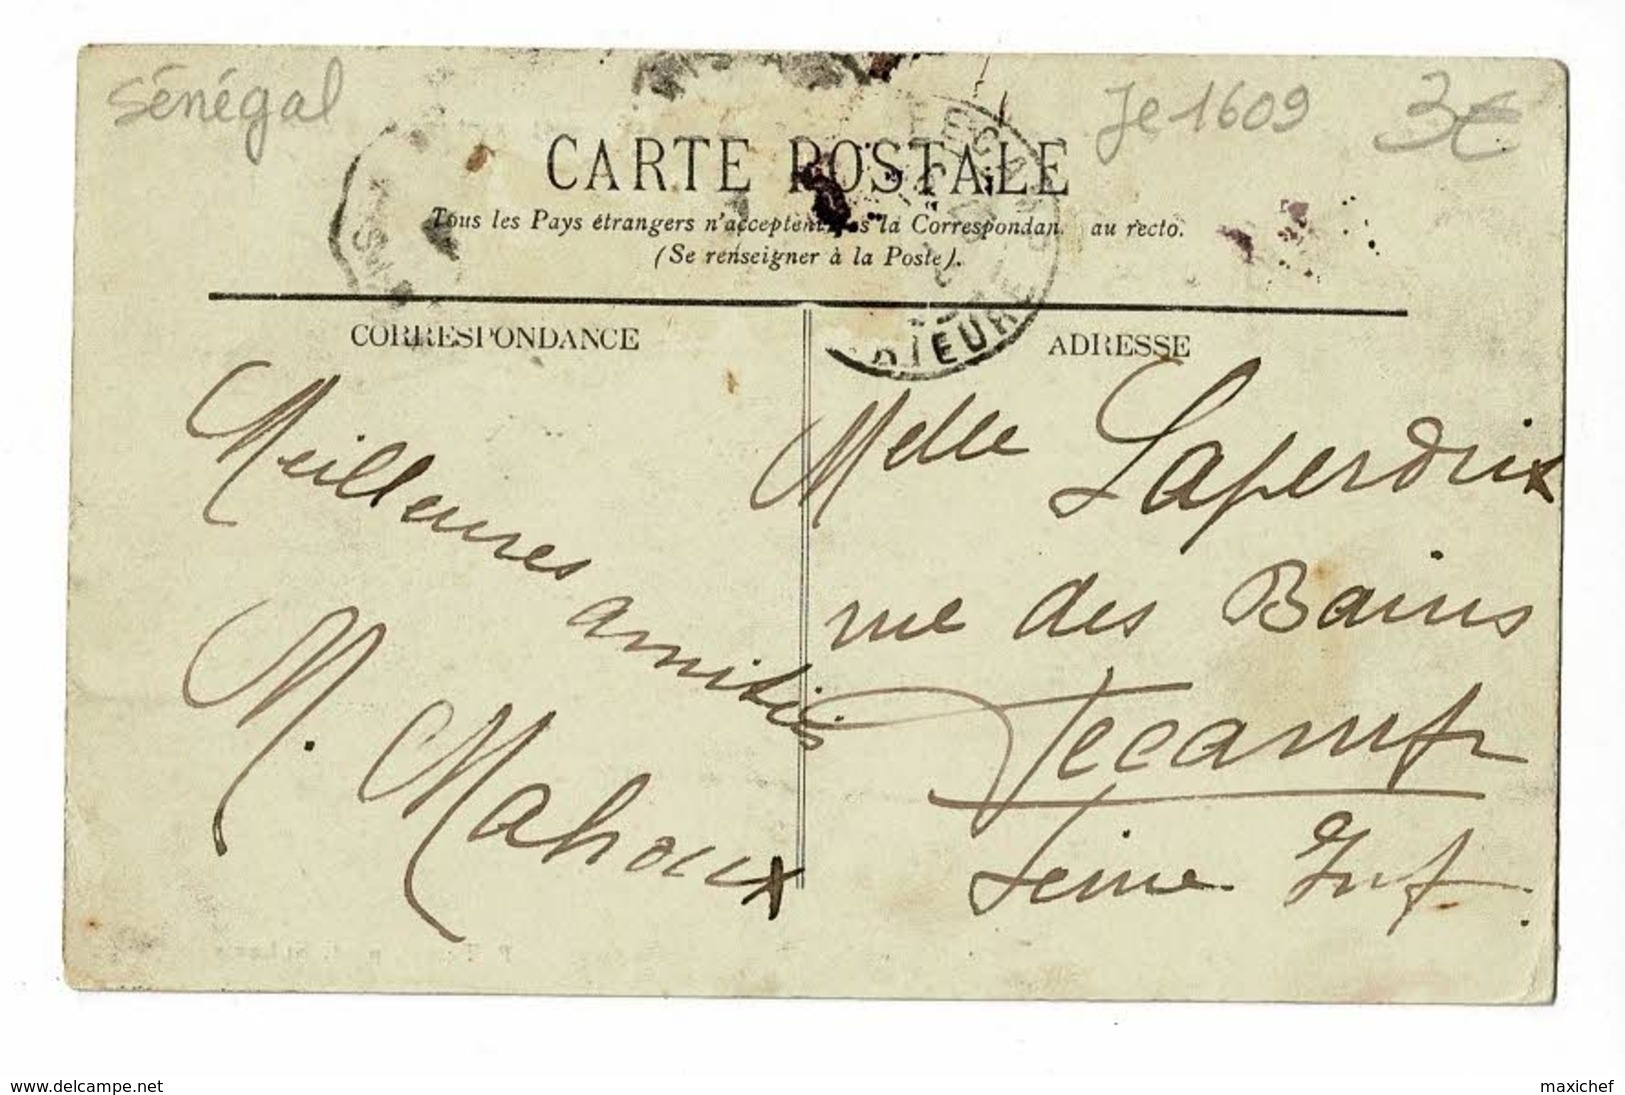 Sénégal
Je 1609 3€
CARTE POSTALE
Tous les Pays étrangers n'acceptent pas la Correspondan au recto.
(Se renseigner à la Poste).
CORRESPONDANCE
Meilleures
amitiés
M. Mahoux
ADRESSE
Melle Laperdrix
rue des Bains
Fecamp
Seine Inf.
FECAMP
RIEURE
www.delcampe.net
maxichef